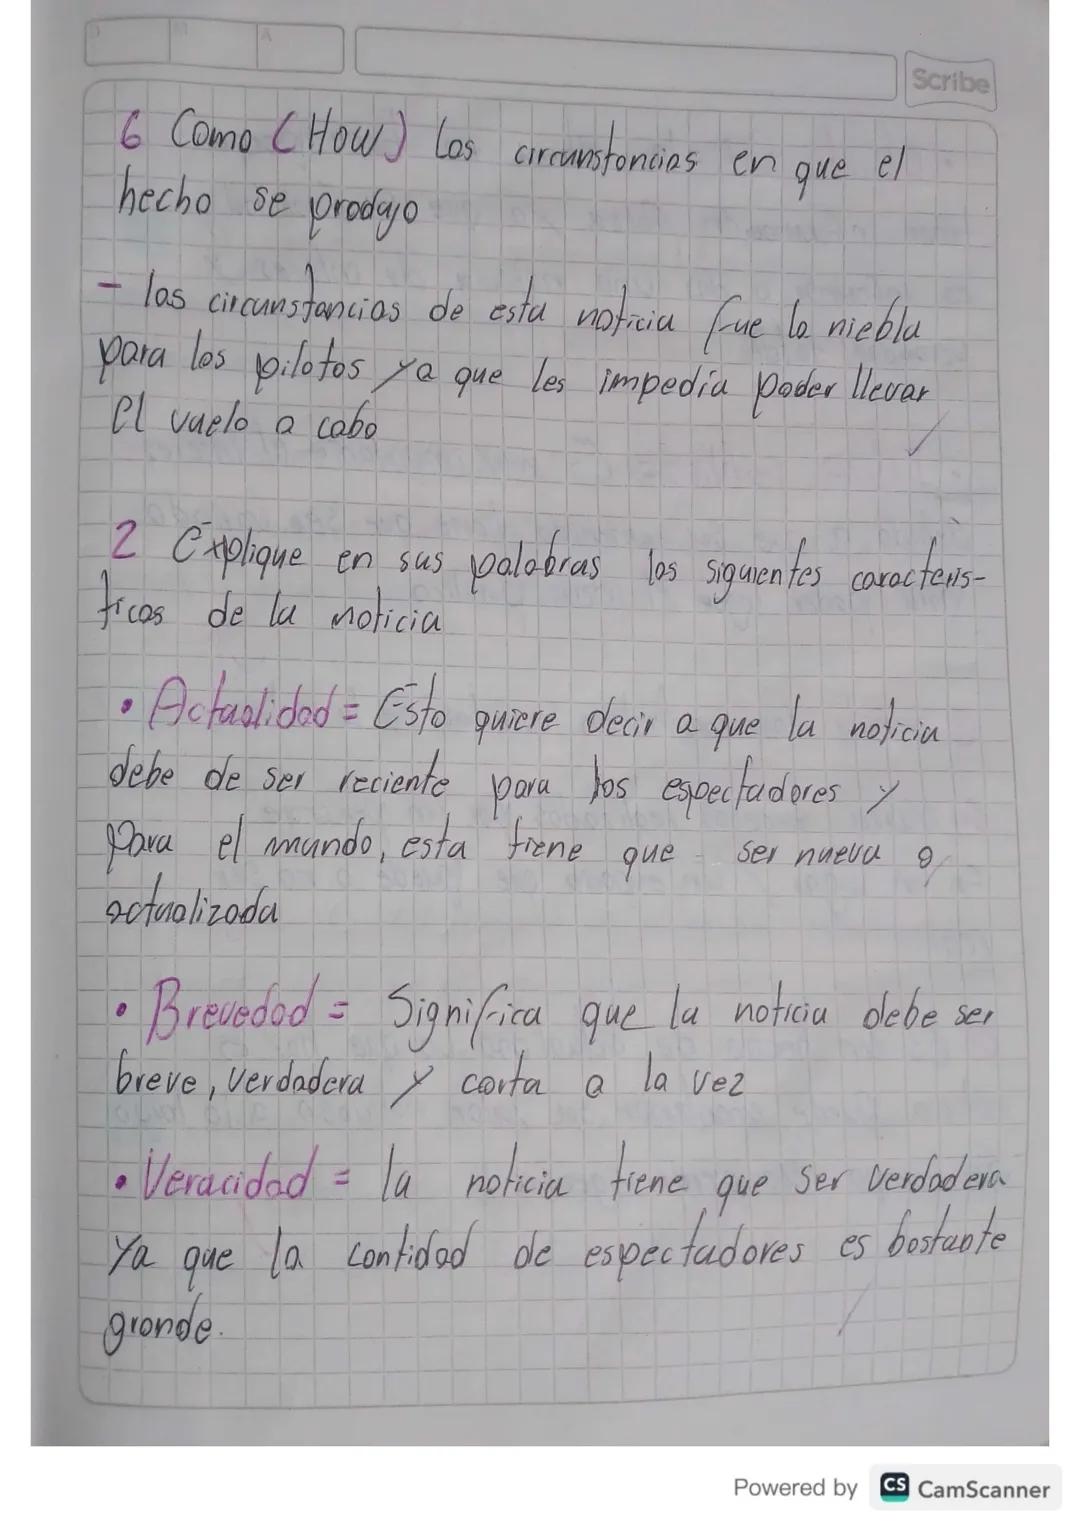 D M A
Scribe
6 Como (How) Las circunstancias en que el
hecho se produjo
- las circunstancias de esta noticia fue la niebla
para los pilotos ya que les impedía poder llevar
El vuelo a cabo
2 Explique en sus palabras las siguientes caracterís-
ticas de la noticia
• Actualidad = Esto quiere decir a que la noticia
debe de ser reciente para los espectadores y
para el mundo, esta tiene que ser nueva o
actualizada
• Brevedad = Significa que la noticia debe ser
breve, verdadera y corta a la vez
• Veracidad = la noticia tiene que ser verdadera
ya que la cantidad de espectadores es bastante
grande.
Powered by CS CamScanner